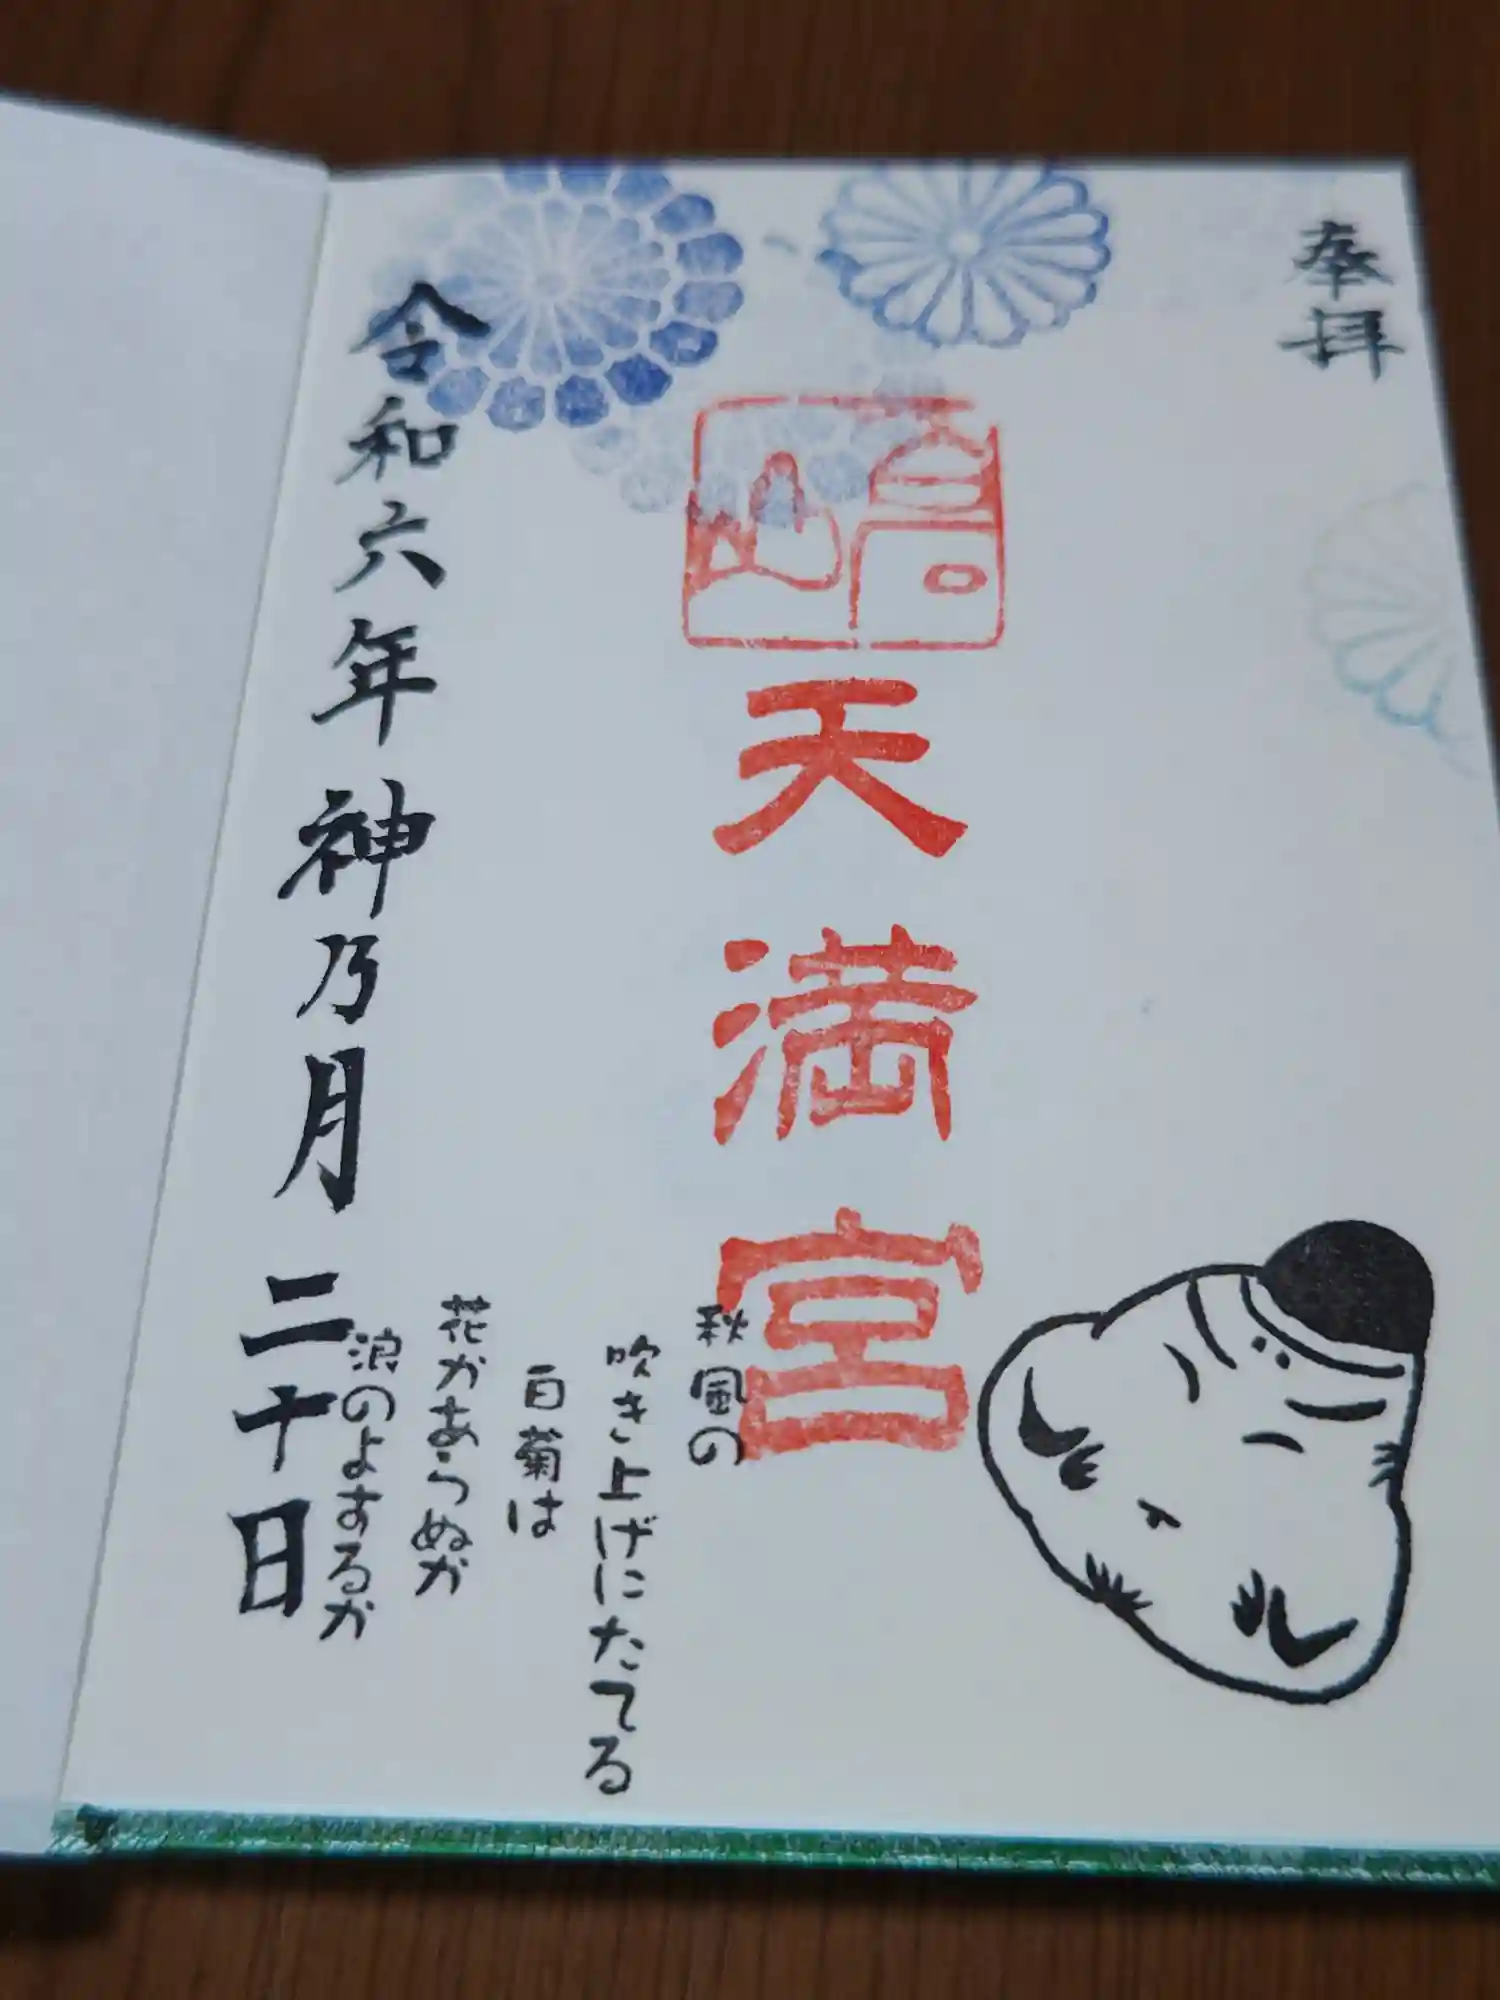 奉拝
崎
天満宮
秋風の
吹き上げにたてる
白菊は
花かあらぬか
浪のよするか
令和六年神乃月二十日